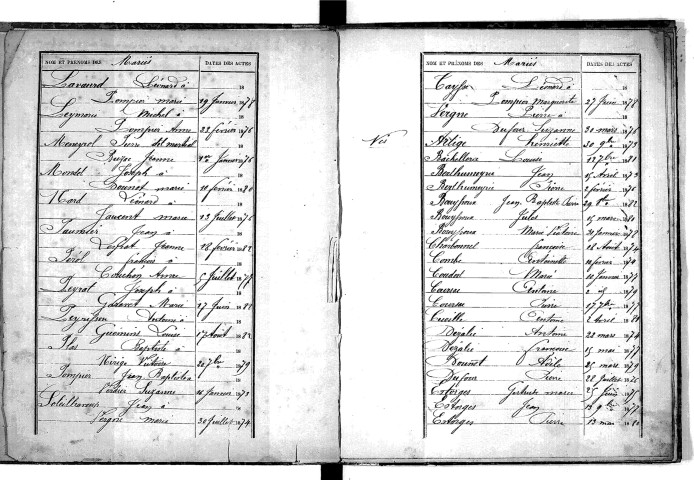 NOM ET PRÉNOMS DES Mariés DATES DES ACTES
Lavaurd Léonard à 18
Pompier marie 29 Janvier 1878
Leymarie Michel à 18
Pompier Anne 22 février 1876
Meneyrol Pierre dit marchal
Jeanne Janvier 1876
Mondel Joseph à 18
Bounot marie 10 février 1880
Nard Léonard à 18
marie 13 Juillet 1875
Jean à 18
Jeanne 18 février 1882
Pérol à 18
Couchon Anne 5 Juillet 1877
Peyrat Joseph à 18
Marie 27 Juin 188
Antoine à 18
Louise 17 Août 188
Plas Baptiste à 18
Victoire 20 7bre 1879
Pompier Jean Baptiste à
Suzanne Janvier 1873
Soleilhavoup Jean à 18
Vergne marie 30 Juillet 1874
NOM ET PRÉNOMS DES Mariés DATES DES ACTES
Léonard à 18
Pompier Marguerite 27 Juin 1878
Vergne Pierre à 18
Dufour Suzanne 30 mars 1876
Nés
Artige Henriette 30 9bre 1873
Bachellerie Louise 12 7bre 1881
Berthumeyrie Jean 15 Avril 1873
Berthumeyrie Pierre 2 février 1876
Bouyssou Jean Baptiste Pierre 29 1882
Bouyssou Jules 15 mars 1880
Bouyssou Marie Victoire 30 Janvier 1878
Charbonnel françoise 18 Août 1874
Combe Antoinette 10 février 1879
Coudert Marie 10 Janvier 1877
Couerse Antoine 1879
Couerse Pierre 17 7bre 1877
Cueille Antoine 2 Avril 188
Dezalie Antoine 22 mars 1874
Dezalie françoise 15 mai 1877
Bounot Adèle 25 mars 1879
Dufour Pierre 22 Juillet 1875
Estorges Gertrude marie 25 Juin 1875
Estorges Jean 13 9bre 1877
Estorges Pierre 13 mai 1880